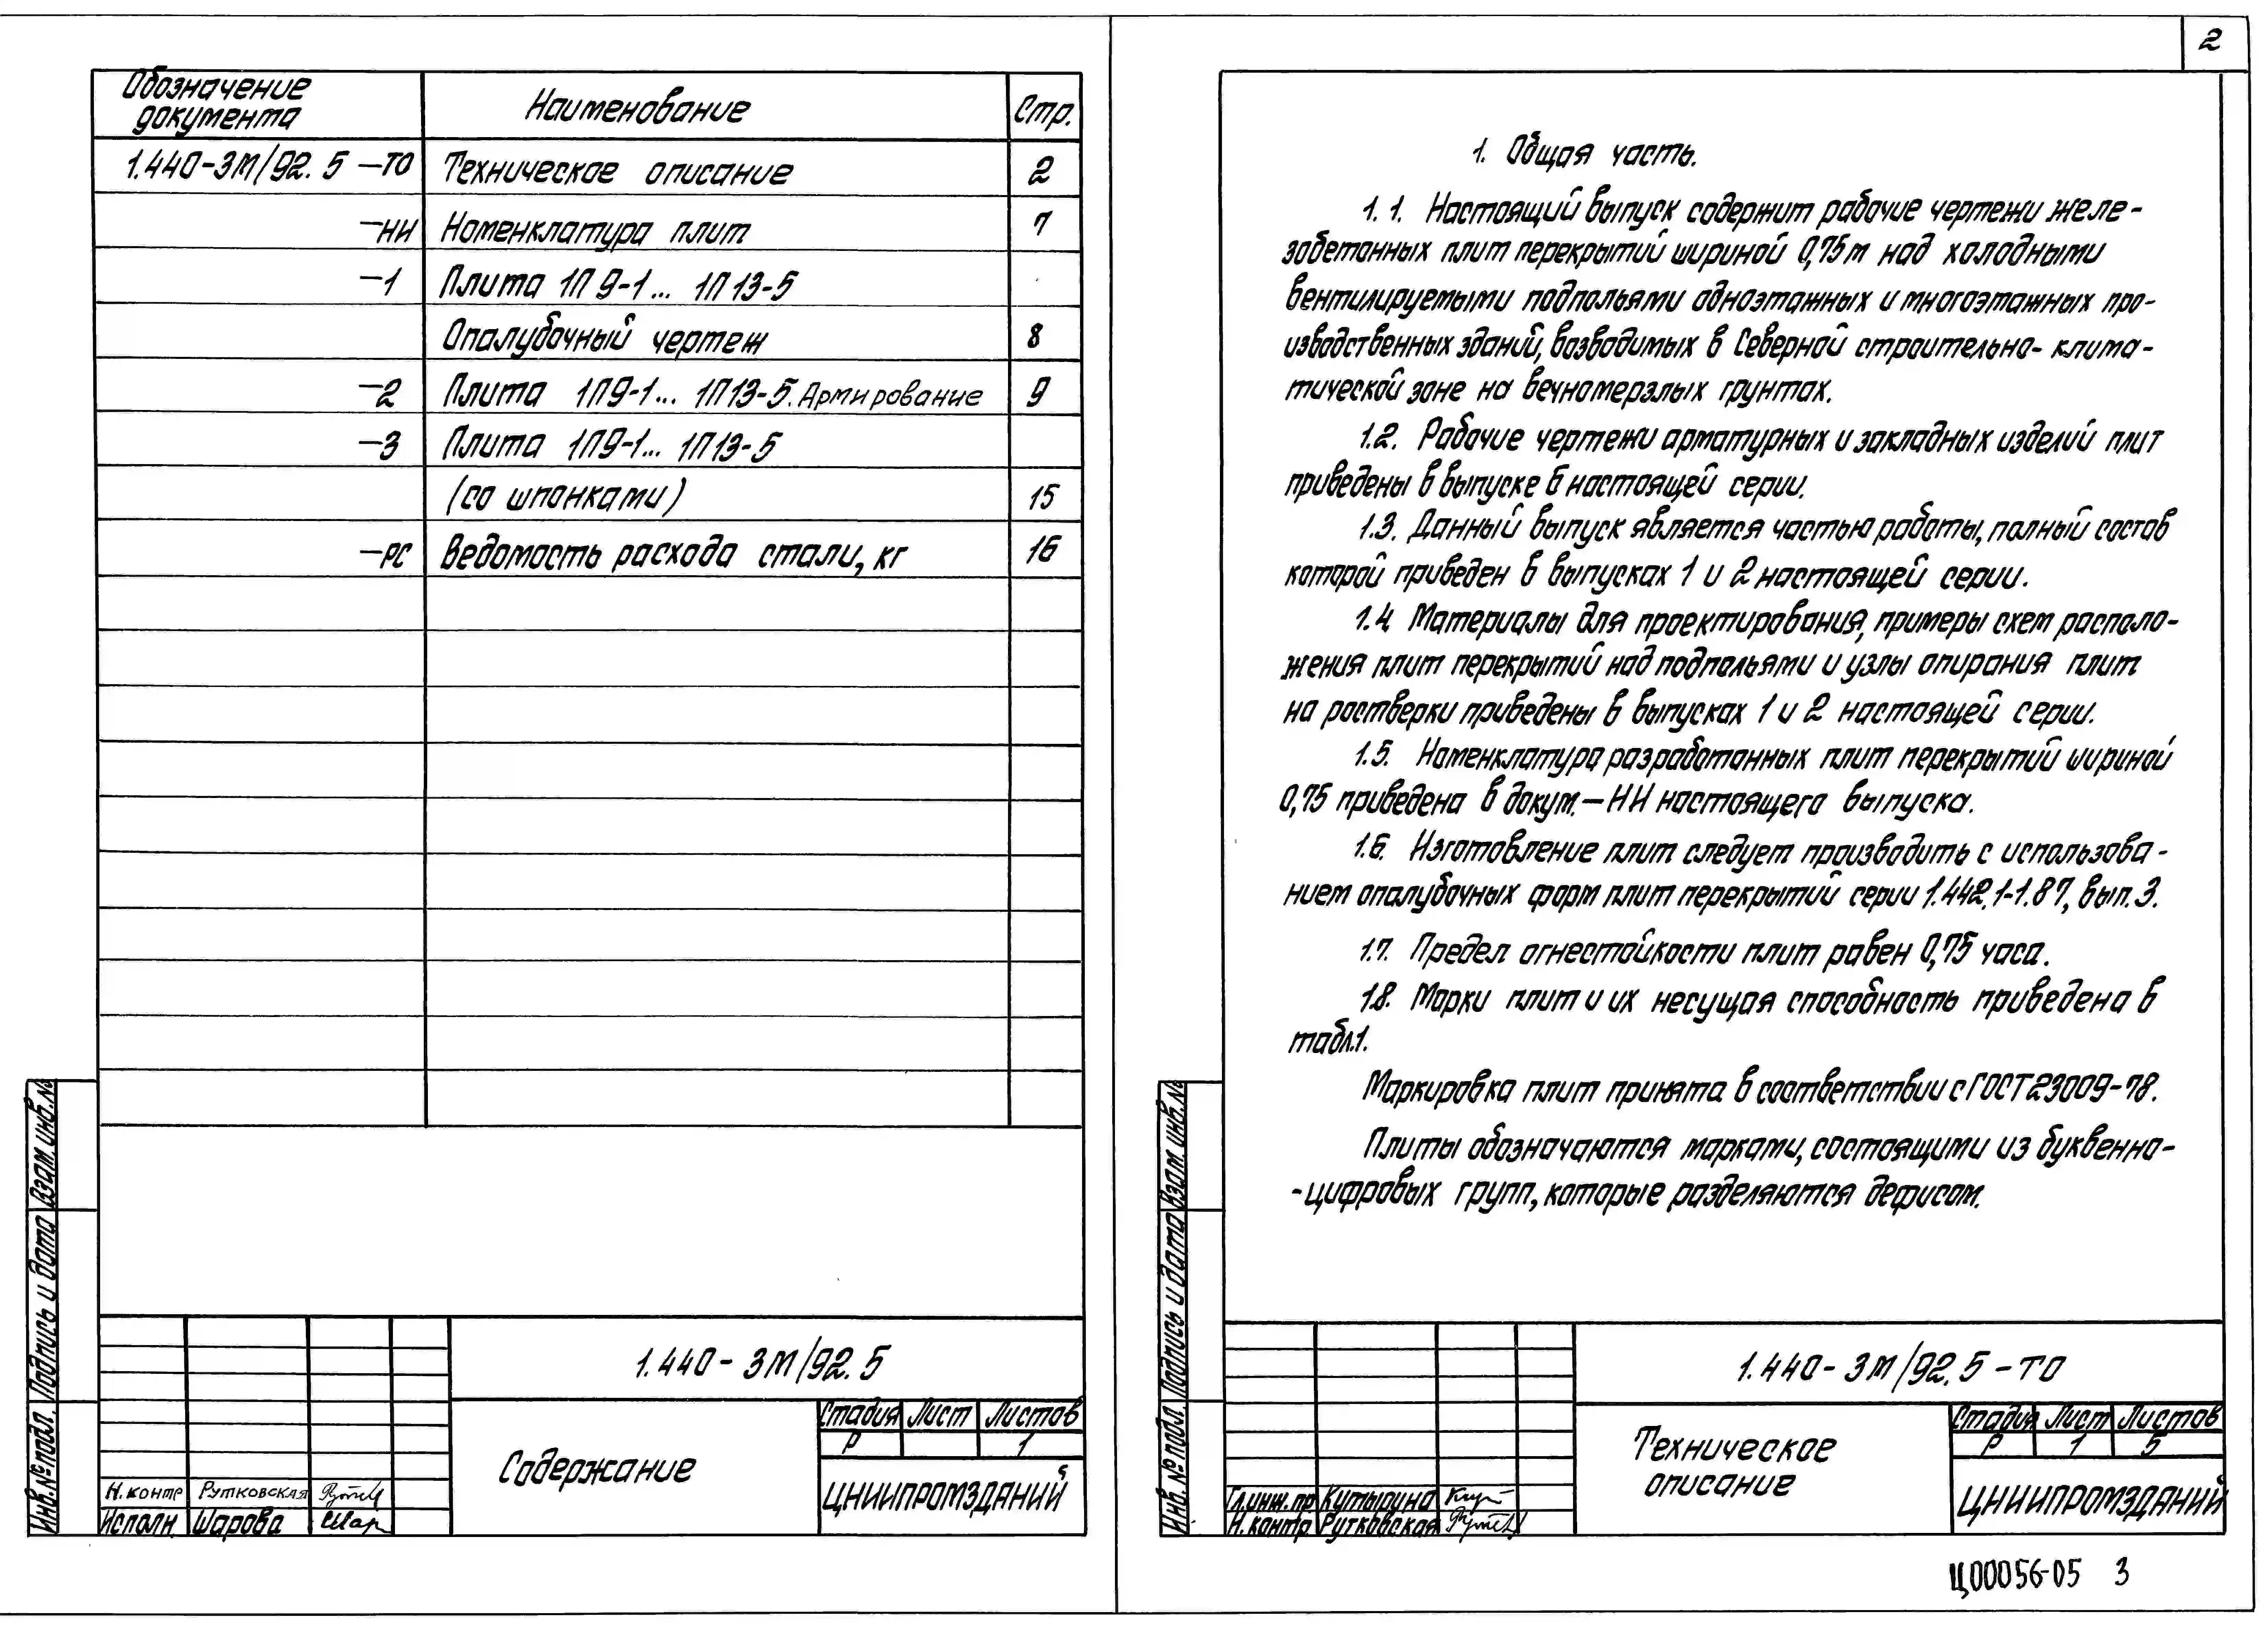 Обозначение документа Наименование Стр.
1.440-3М/92.5 -ТО Техническое описание 2
-НИ Номенклатура плит 7
-1 Плита 1П9-1... 1П13-5
Опалубочный чертеж 8
-2 Плита 1П9-1... 1П13-5. Армирование 9
-3 Плита 1П9-1... 1П13-5
(со шпонками) 15
-РС Ведомость расхода стали, кг 16
Взам. инв. №
Подпись и дата
Инв. № подл.
1.440-3М/92.5
Содержание
Стадия Лист Листов
Р 1
ЦНИИПРОМЗДАНИЙ
Н. контр Рутковская
Исполн. Шарова
2
1. Общая часть.
1.1. Настоящий выпуск содержит рабочие чертежи желе-
зобетонных плит перекрытий шириной 0,75м над холодными
вентилируемыми подпольями одноэтажных и многоэтажных про-
изводственных зданий, возводимых в Северной строительно-клима-
тической зоне на вечномерзлых грунтах.
1.2. Рабочие чертежи арматурных и закладных изделий плит
приведены в выпуске 6 настоящей серии.
1.3. Данный выпуск является частью работы, полный состав
которой приведен в выпусках 1 и 2 настоящей серии.
1.4. Материалы для проектирования, примеры схем располо-
жения плит перекрытий над подпольями и узлы опирания плит
на ростверки приведены в выпусках 1 и 2 настоящей серии.
1.5. Номенклатура разработанных плит перекрытий шириной
0,75 приведена в докум. -НИ настоящего выпуска.
1.6. Изготовление плит следует производить с использова-
нием опалубочных форм плит перекрытий серии 1.442.1-1.87, вып. 3.
1.7. Предел огнестойкости плит равен 0,75 часа.
1.8. Марки плит и их несущая способность приведена в
табл.1.
Маркировка плит принята в соответствии с ГОСТ 23009-78.
Плиты обозначаются марками, состоящими из буквенно-
-цифровых групп, которые разделяются дефисом.
Взам. инв. №
Подпись и дата
Инв. № подл.
1.440-3М/92.5-ТО
Техническое
описание
Стадия Лист Листов
Р 1 5
ЦНИИПРОМЗДАНИЙ
Гл.инж.пр Кутырина
Н. контр. Рутковская
Ц00056-05 3